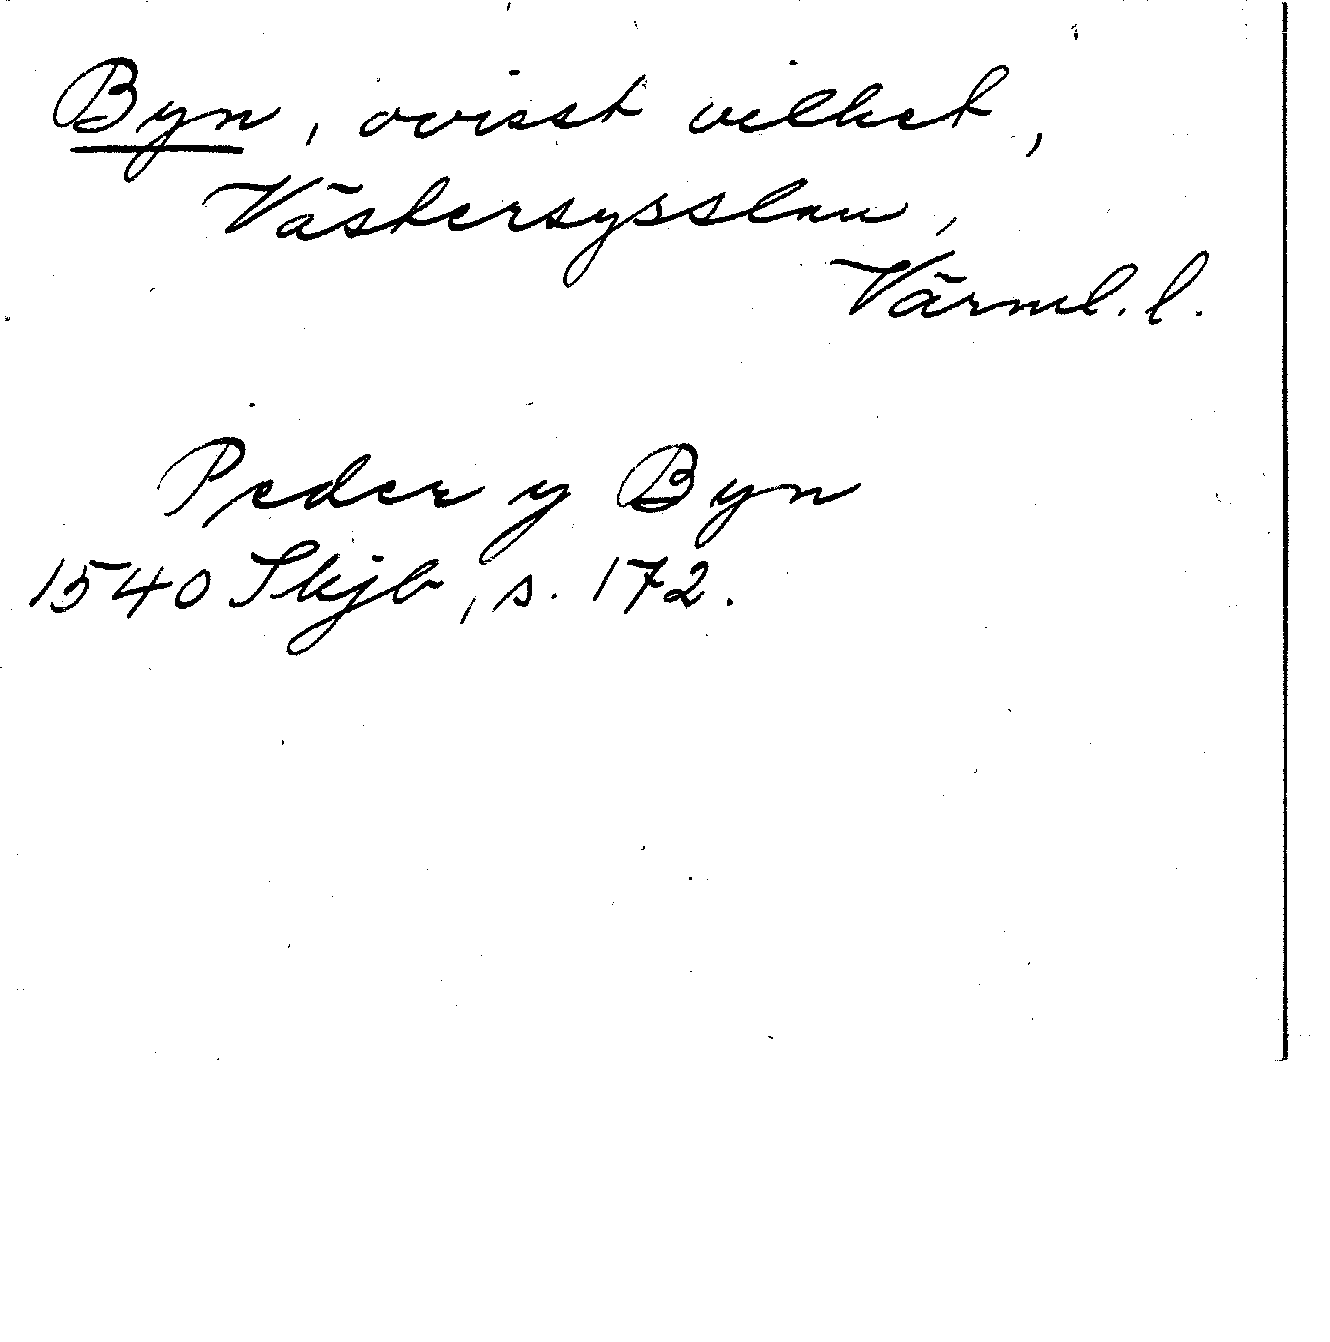 Byn, ovisst vilket,
Västersysslan,
Värml. l.
Peder y Byn
1540 Skjb, s. 172.